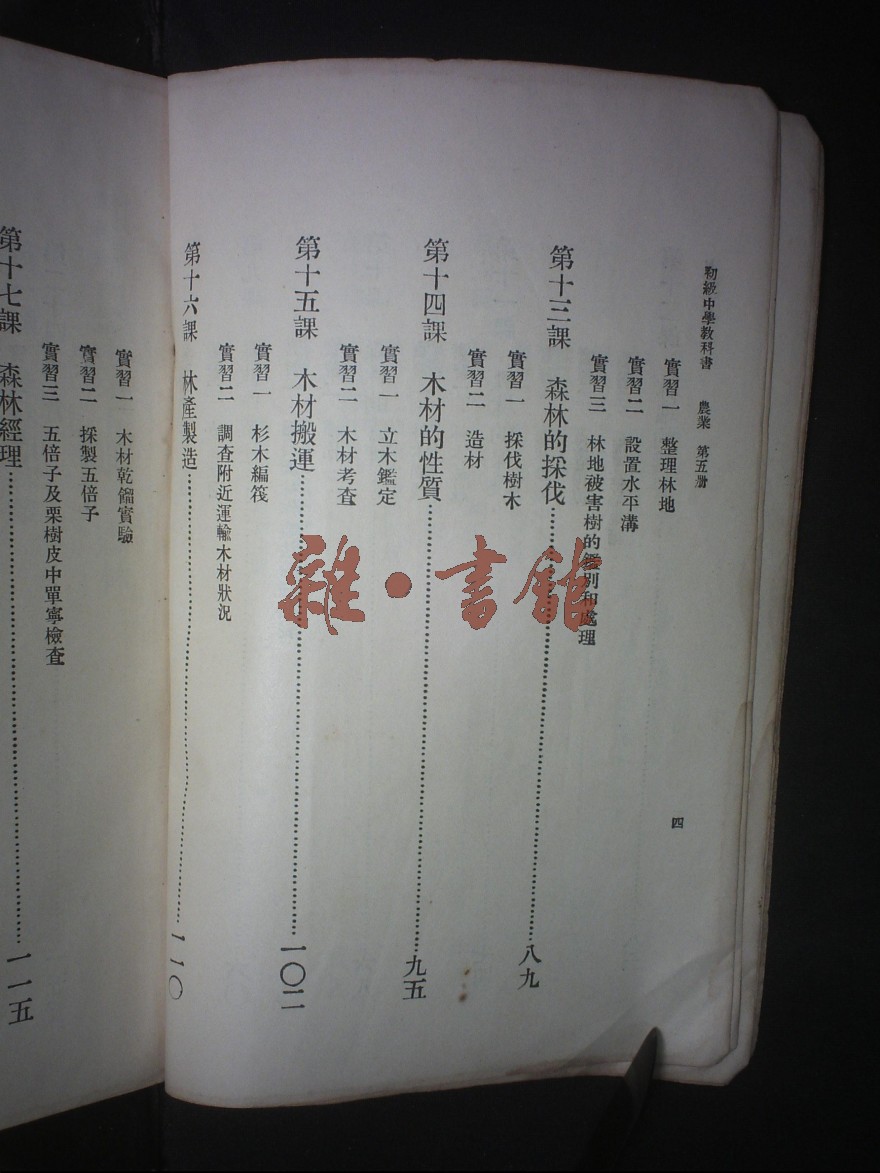 初級中學教科書　農業　第五册
四
實習一　整理林地
實習二　設置水平溝
實習三　林地被害樹的鑑別和處理
第十三課　森林的採伐……八九
實習一　採伐樹木
實習二　造材
第十四課　木材的性質……九五
實習一　立木鑑定
實習二　木材考查
第十五課　木材搬運……一〇二
實習一　杉木編筏
實習二　調查附近運輸木材狀況
第十六課　林產製造……一一〇
實習一　木材乾餾實驗
實習二　採製五倍子
實習三　五倍子及栗樹皮中單寧檢查
第十七課　森林經理……一一五
雜·書館